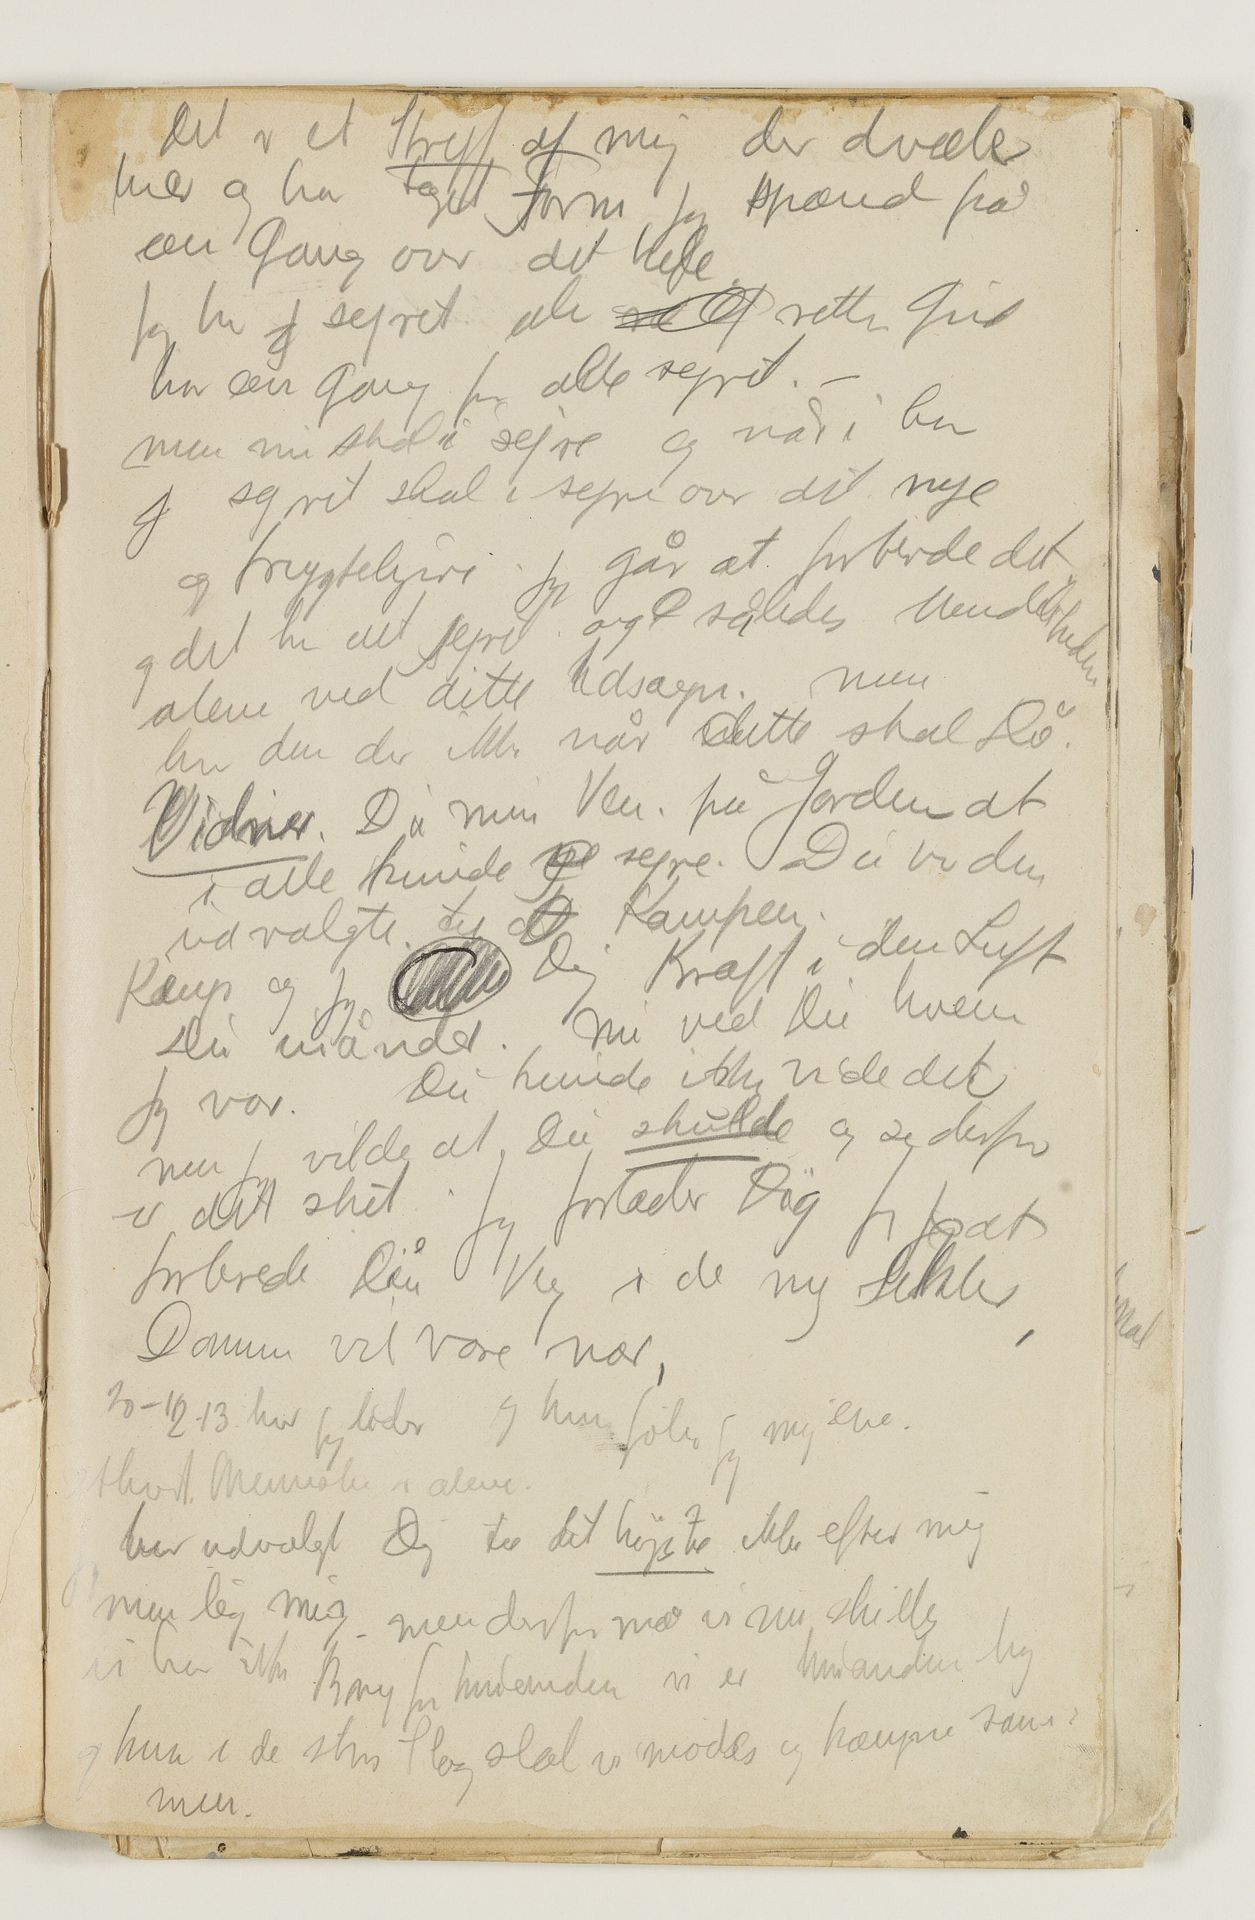 Det er et Stryf af mig der dvæler
her og har taget Form jeg spænd på
een Gang over det hele.
Jeg har sejret. alle rette Gud
har een Gang for alle sejret. –
men nu skal i sejre og når i har
sejret skal i sejre over det nye
og frygteligere. jeg går at forberede det
og det har alt sejret og således
alene ved dette Udsagn. men
den der ikke når dette skal Dö.
Vidner. Du min Ven. på Jorden at
i alle kunde sejre. Du var den
udvalgte. Kampen.
Kæmp og jeg Dig Kraft i den Luft
Du inånder. Nu ved Du hvem
Jeg var. Du kunde ikke vide det
men jeg vilde at Du skulde og se derfor
er det sket. jeg forlader Dig for at
forberede Din Vej i de ny Sekler,
Dommen vil være nær,
20-12-13. her jeg lider og kun føler jeg mig ene.
Mennesker alene.
har udvalgt Dig til det højeste ikke efter mig
men lig mig – men derfor må vi nu skilles
vi har ikke Brug for hinanden vi er hinanden
og kun i de store Slag skal vi mödes og kæmpe sam-
men.